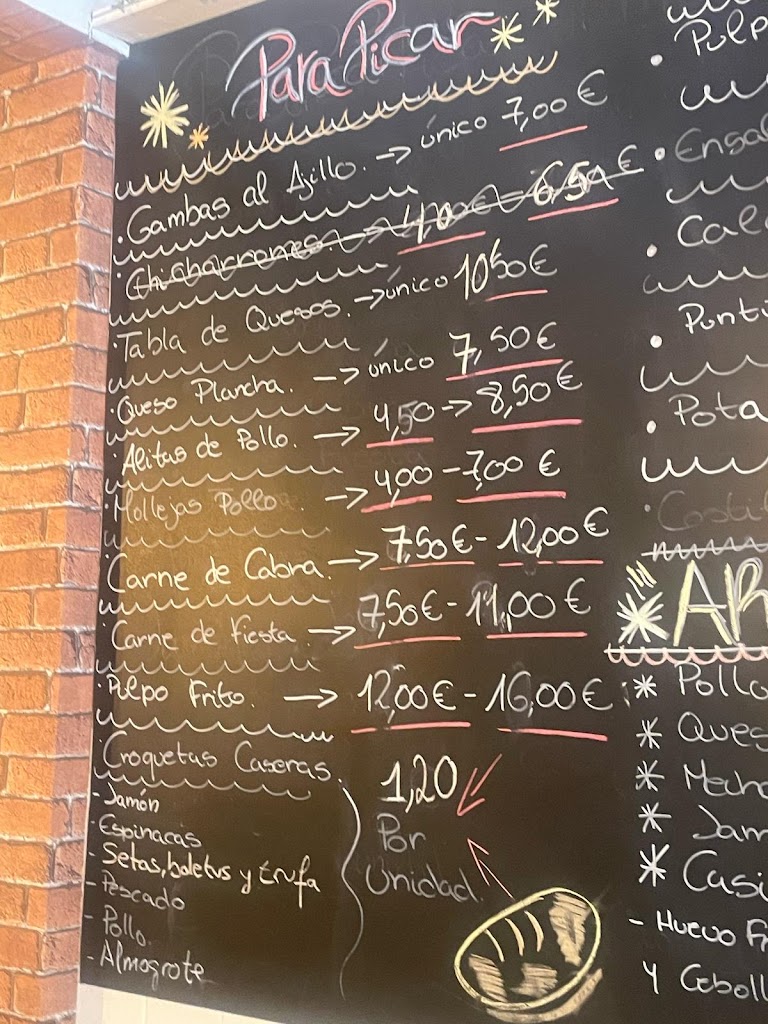 Para Picar
· Gambas al Ajillo. → único 7,00 €
· Chicharrones. → 4,00€ - 6,50 €
· Tabla de Quesos. → único 10'50 €
· Queso Plancha. → único 7,50 €
· Alitas de Pollo. → 4,50 → 8,50 €
· Mollejas Pollo. → 4,00 - 7,00 €
· Carne de Cabra. → 7,50 € - 12,00 €
· Carne de Fiesta → 7,50 € - 11,00 €
· Pulpo Frito. → 12,00 € - 16,00 €
· Croquetas Caseras. 1,20
Por
Unidad.
- Jamón
- Espinacas
- Setas, boletus y trufa
- Pescado
- Pollo.
- Almogrote
· Pulp
· Ensal
· Cal
· Punti
· Pota
· Costil
* AR
* Pollo
* Ques
* Mecha
* Jam
* Casi
- Huevo F
y Ceboll